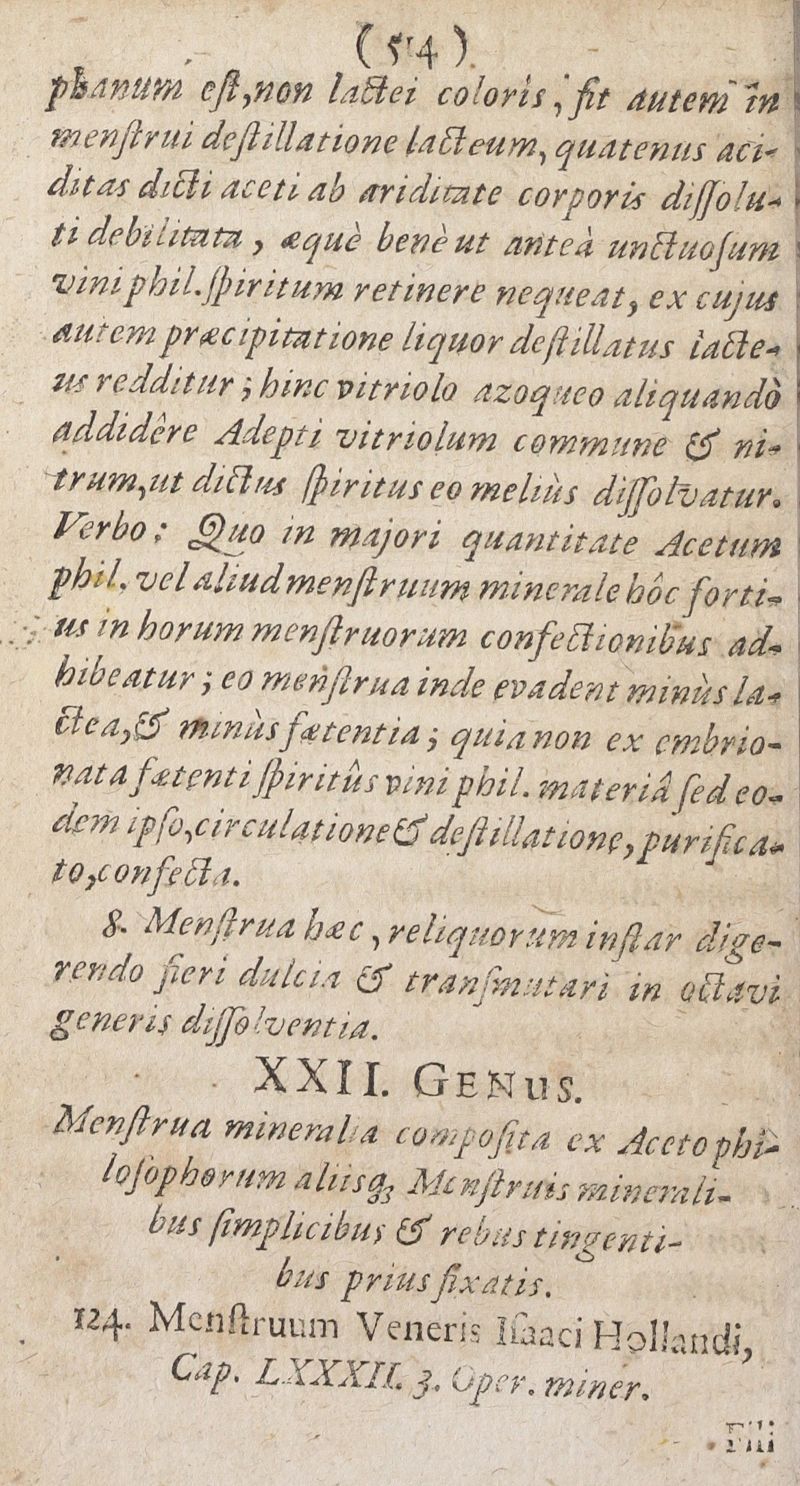 (54)
phanum est, non lactei coloris, fit autem in
menſtrui deſtillatione lacteum, quatenus aci-
ditas dicti aceti ab ariditate corporis diſſolu-
ti debilitata, æquè benè ut anteà unctuoſum
vini phil. ſpiritum retinere nequeat, ex cujus
autem præcipitatione liquor deſtillatus lacte-
us redditur; hinc vitriolo azoqueo aliquandò
addidêre Adepti vitriolum commune & ni-
trum, ut dictus ſpiritus eo meliùs diſſolvatur.
Verbo: Quo in majori quantitate Acetum
phil. vel aliud menſtruum minerale hôc forti-
us in horum menſtruorum confectionibus ad-
hibeatur; eo menſtrua inde evadent minùs la-
ctea, & minùs fætentia; quia non ex embrio-
nata fætenti ſpiritûs vini phil. materiâ ſed eo-
dem ipſo, circulatione & deſtillatione, purifica-
to, confecta.
8. Menſtrua hæc, reliquorum inſtar dige-
rendo fieri dulcia & tranſmutari in octavi
generis diſſolventia.
XXII. GENUS.
Menſtrua mineralia compoſita ex Aceto phi-
loſophorum aliisq; Menſtruis minerali-
bus ſimplicibus & rebus tingenti-
bus prius fixatis.
124. Menſtruum Veneris Iſaaci Hollandi,
Cap. LXXXII. 3. Oper. miner.
Fili